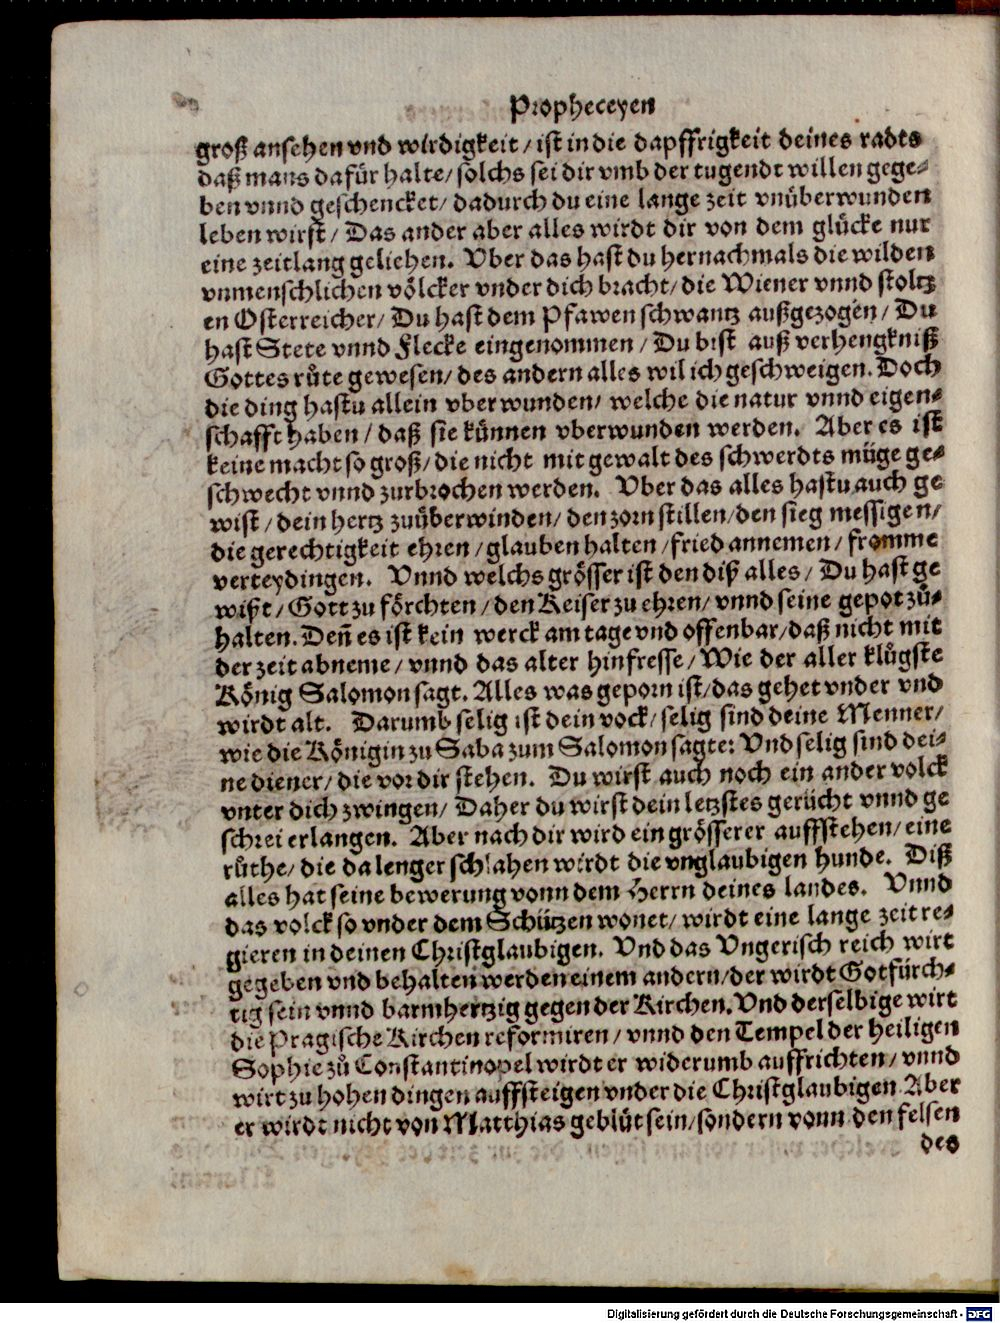 Propheceyen
groß ansehen vnd wirdigkeit / ist in die dapffrigkeit deines radts
daß mans dafür halte / solchs sei dir vmb der tugendt willen gege-
ben vnnd geschencket / dadurch du eine lange zeit vnüberwunden
leben wirst / Das ander aber alles wirdt dir von dem glücke nur
eine zeitlang geliehen. Vber das hast du hernachmals die wilden
vnmenschlichen völcker vnder dich bracht / die Wiener vnnd stoltz
en Osterreicher / Du hast dem Pfawen schwantz außgezogen / Du
hast Stete vnnd Flecke eingenommen / Du bist auß verhengkniß
Gottes růte gewesen / des andern alles wil ich geschweigen. Doch
die ding hastu allein vberwunden / welche die natur vnnd eigen-
schafft haben / daß sie künnen vberwunden werden. Aber es ist
keine macht so groß / die nicht mit gewalt des schwerdts müge ge-
schwecht vnnd zurbrochen werden. Vber das alles hastu auch ge
wist / dein hertz zuüberwinden / den zorn stillen / den sieg messigen /
die gerechtigkeit ehren / glauben halten / fried annemen / fromme
verteydingen. Vnnd welchs grösser ist den diß alles / Du hast ge
wißt / Gott zu förchten / den Keiser zu ehren / vnnd seine gepot zů-
halten. Deñ es ist kein werck am tage vnd offenbar / daß nicht mit
der zeit abneme / vnnd das alter hinfresse / Wie der aller klůgste
König Salomon sagt. Alles was geporn ist / das gehet vnder vnd
wirdt alt. Darumb selig ist dein vock / selig sind deine Menner /
wie die Königin zu Saba zum Salomon sagte: Vnd selig sind dei-
ne diener / die vor dir stehen. Du wirst auch noch ein ander volck
vnter dich zwingen / Daher du wirst dein letzstes gerücht vnnd ge
schrei erlangen. Aber nach dir wird ein grösserer auffstehen / eine
růthe / die da lenger schlahen wirdt die vnglaubigen hunde. Diß
alles hat seine bewerung vonn dem Herrn deines landes. Vnnd
das volck so vnder dem Schützen wonet / wirdt eine lange zeit re-
gieren in deinen Christglaubigen. Vnd das Vngerisch reich wirt
gegeben vnd behalten werden einem andern / der wirdt Gotfürch-
tig sein vnnd barmhertzig gegen der Kirchen. Vnd derselbige wirt
die Pragische Kirchen reformiren / vnnd den Tempel der heiligen
Sophie zů Constantinopel wirdt er widerumb auffrichten / vnnd
wirt zu hohen dingen auffsteigen vnder die Christglaubigen Aber
er wirdt nicht von Matthias geblüt sein / sondern vonn den felsen
des
Digitalisierung gefördert durch die Deutsche Forschungsgemeinschaft - DFG